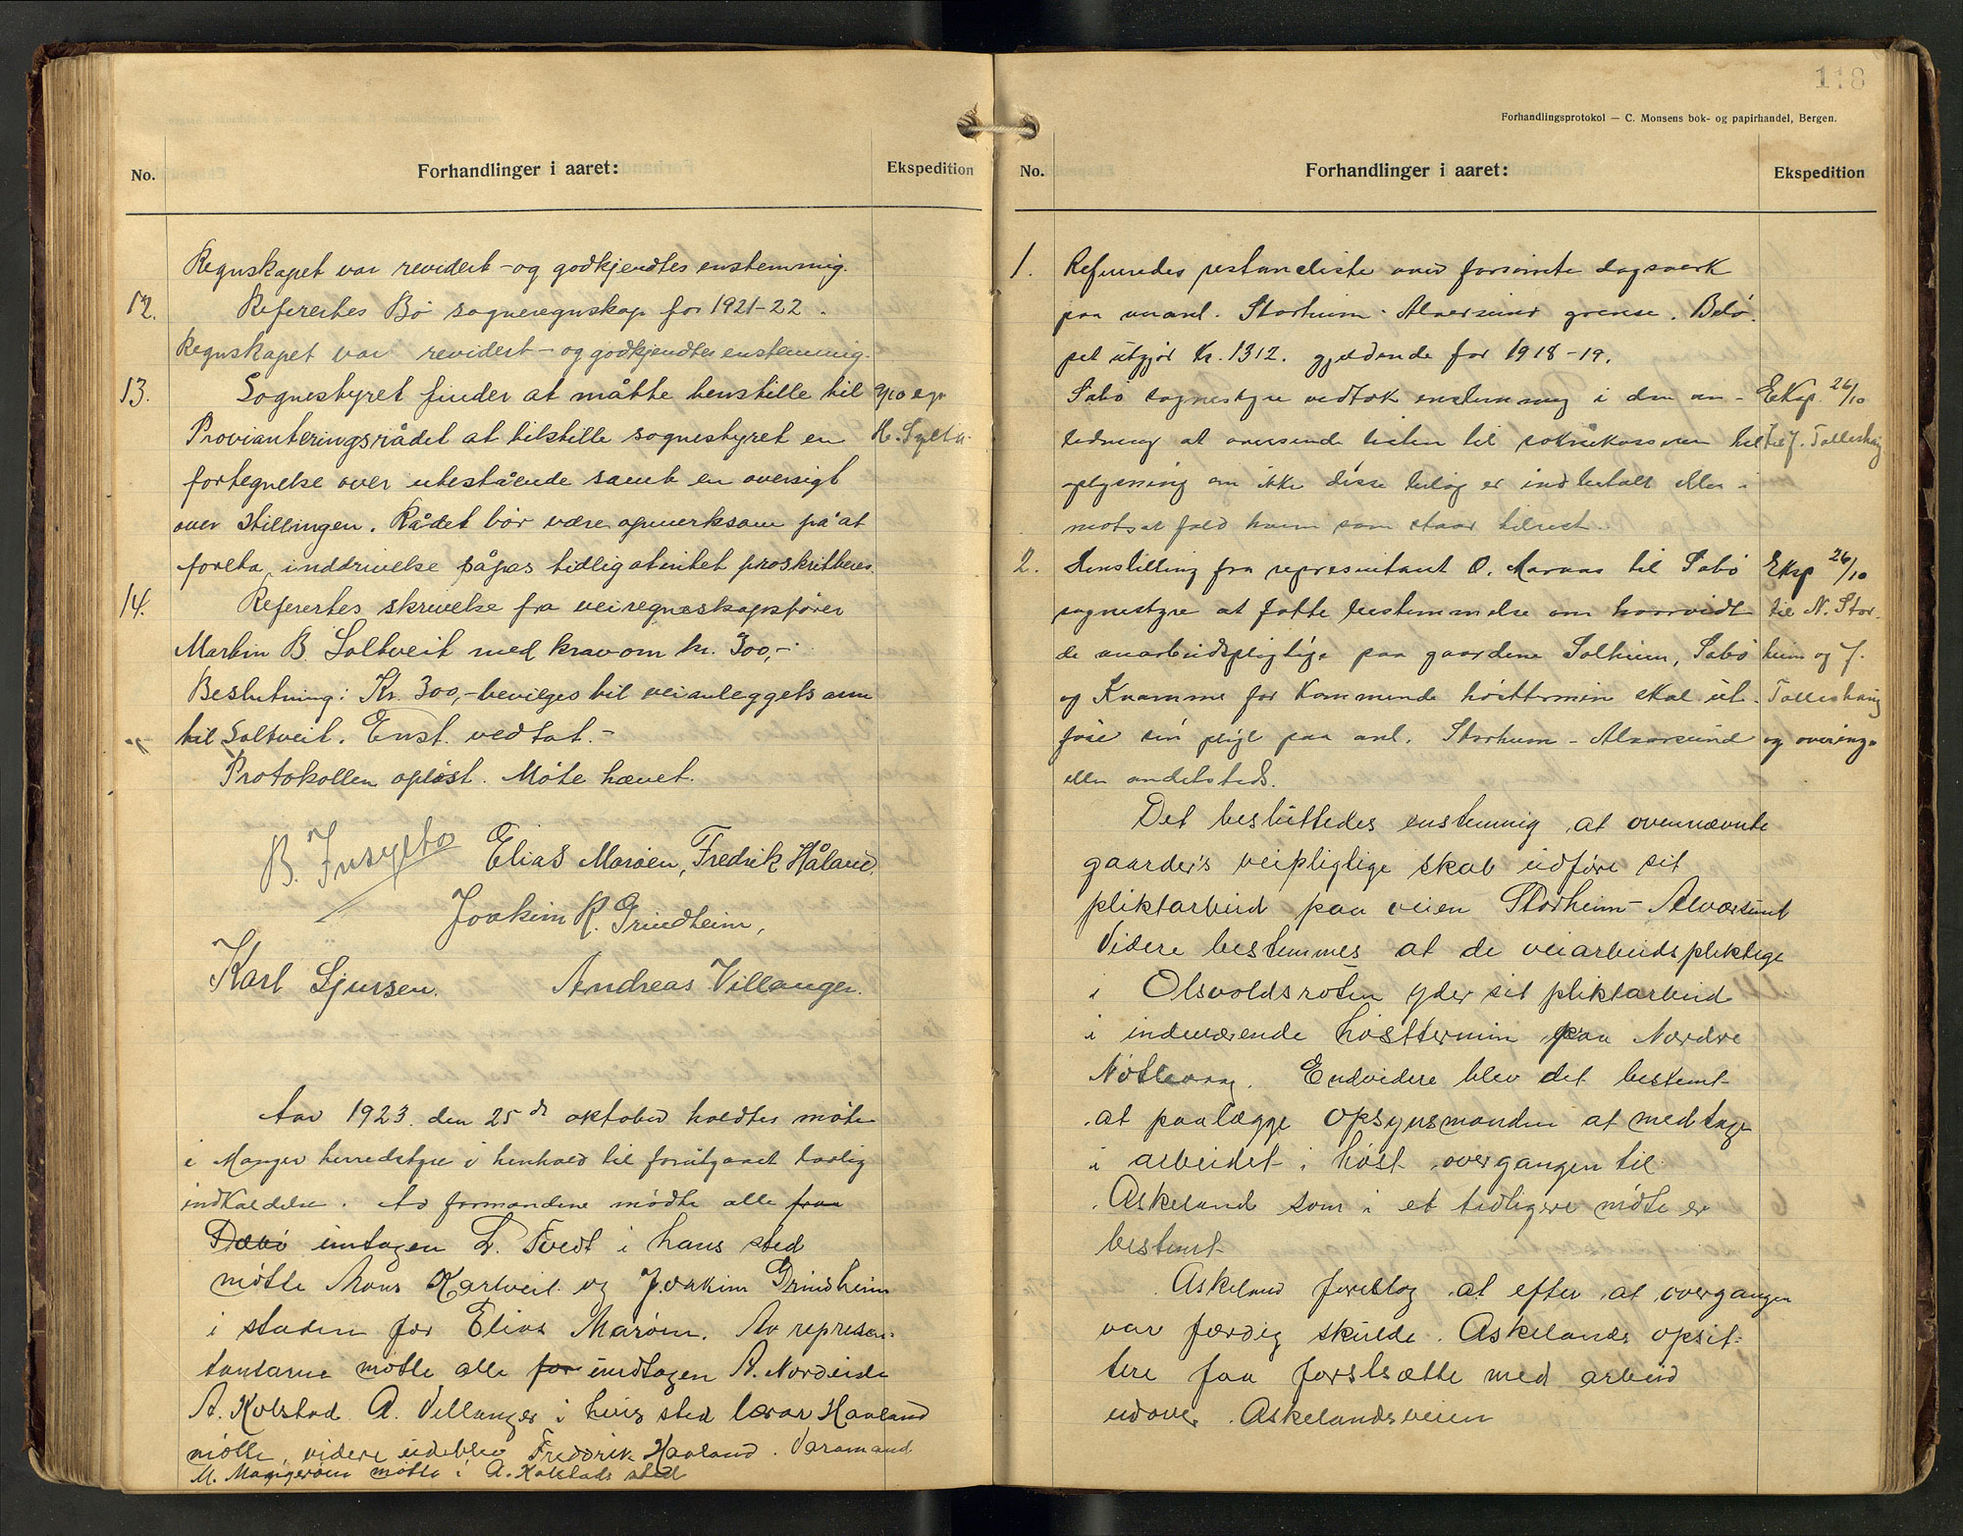 No.
Forhandlinger i aaret:
Ekspedition
Regnskapet var revidert - og godkjendtes enstemmig.
12. Referertes Bø sogneregnskap for 1921-22.
Regnskapet var revidert - og godkjendtes enstemmig.
13. Sognestyret finder at måtte henstille til
Provianteringsrådet at tilstille sognestyret en
fortegnelse over utestående samt en oversigt
over stillingen. Rådet bør være opmerksom på at
foreta inddrivelse såpas tidlig at intet proskriberes.
14. Referertes skrivelse fra veiregnskapsfører
Martin B. Soltveit med krav om kr. 300,-
Beslutning: Kr. 300,- bevilges til veianleggets
til Soltveit. Enst. vedtat. -
Protokollen opløst. Møte hævet.
B. Elias Marøen, Fredrik Håland.
Joakim R. Grindheim,
Karl Sjursen. Andreas Villanger.
Aar 1923 den 25de oktober holdtes møte
i Manger herredstyre i henhold til forutgaaet lovlig
indkaldelse. Av formændene mødte alle fraa
Dæbø undtagen L. Tvedt i hans sted
møtte Måns Kartveit og Joakim Grindheim
i staden for Elias Marøen. Av represen-
tantarne møtte alle for undtagen A. Nordeide
A. Kolstad A. Villanger i hvis sted lærar Haaland
møtte, videre udeblev Fredrik Haaland. Varamand
M. Mangerøen møtte i A. Kolstads sted
118
Forhandlingsprotokol — C. Monsens bok- og papirhandel, Bergen.
No.
Forhandlinger i aaret:
Ekspedition
1. Refereredes restanceliste over forsømte dagsverk
paa veianl. Storheim - Alversund grense. Belø-
pet utgjør Kr. 1312. gjældende for 1918-19.
Sæbø sognestyre vedtok enstemmig i den an- Eksp. 26/10
ledning at oversende listen til sokne­kasseren til J. Tolleshaug
oplysning om ikke disse beløp er indbetalt eller i
motsat fald hvem som staar tilrest.
2. Henstilling fra representant O. Maraas til Sæbø Eksp 26/10
sognestyre at fatte bestemmelse om hvorvidt til N. Stor-
de veiarbeidspligtige paa gaardene Solheim, Sæbø heim og J.
og Kvamme for kommende høsttermin skal ut- Tolleshaug
føre sin pligt paa anl. Storheim - Alversund
eller andetsteds.
Det besluttedes enstemmig at ovennævnte
gaarders veipligtige skal udføre sit
pliktarbeid paa veien Storheim - Alversund
Videre bestemmes at de veiarbeidspliktige
i Olsvoldsroten yder sit pliktarbeid
i indeværende høsttermin paa Nordre
Nøtlevaag. Endvidere blev det bestemt
at paalægge opsynsmanden at medtage
i arbeidet i høst overgangen til
Askeland som i et tidligere møte er
bestemt
Askeland foreslog at efter at overgangen
var færdig skulde Askelands opsit-
tere faa forsætte med arbeid
udover Askelandsveien